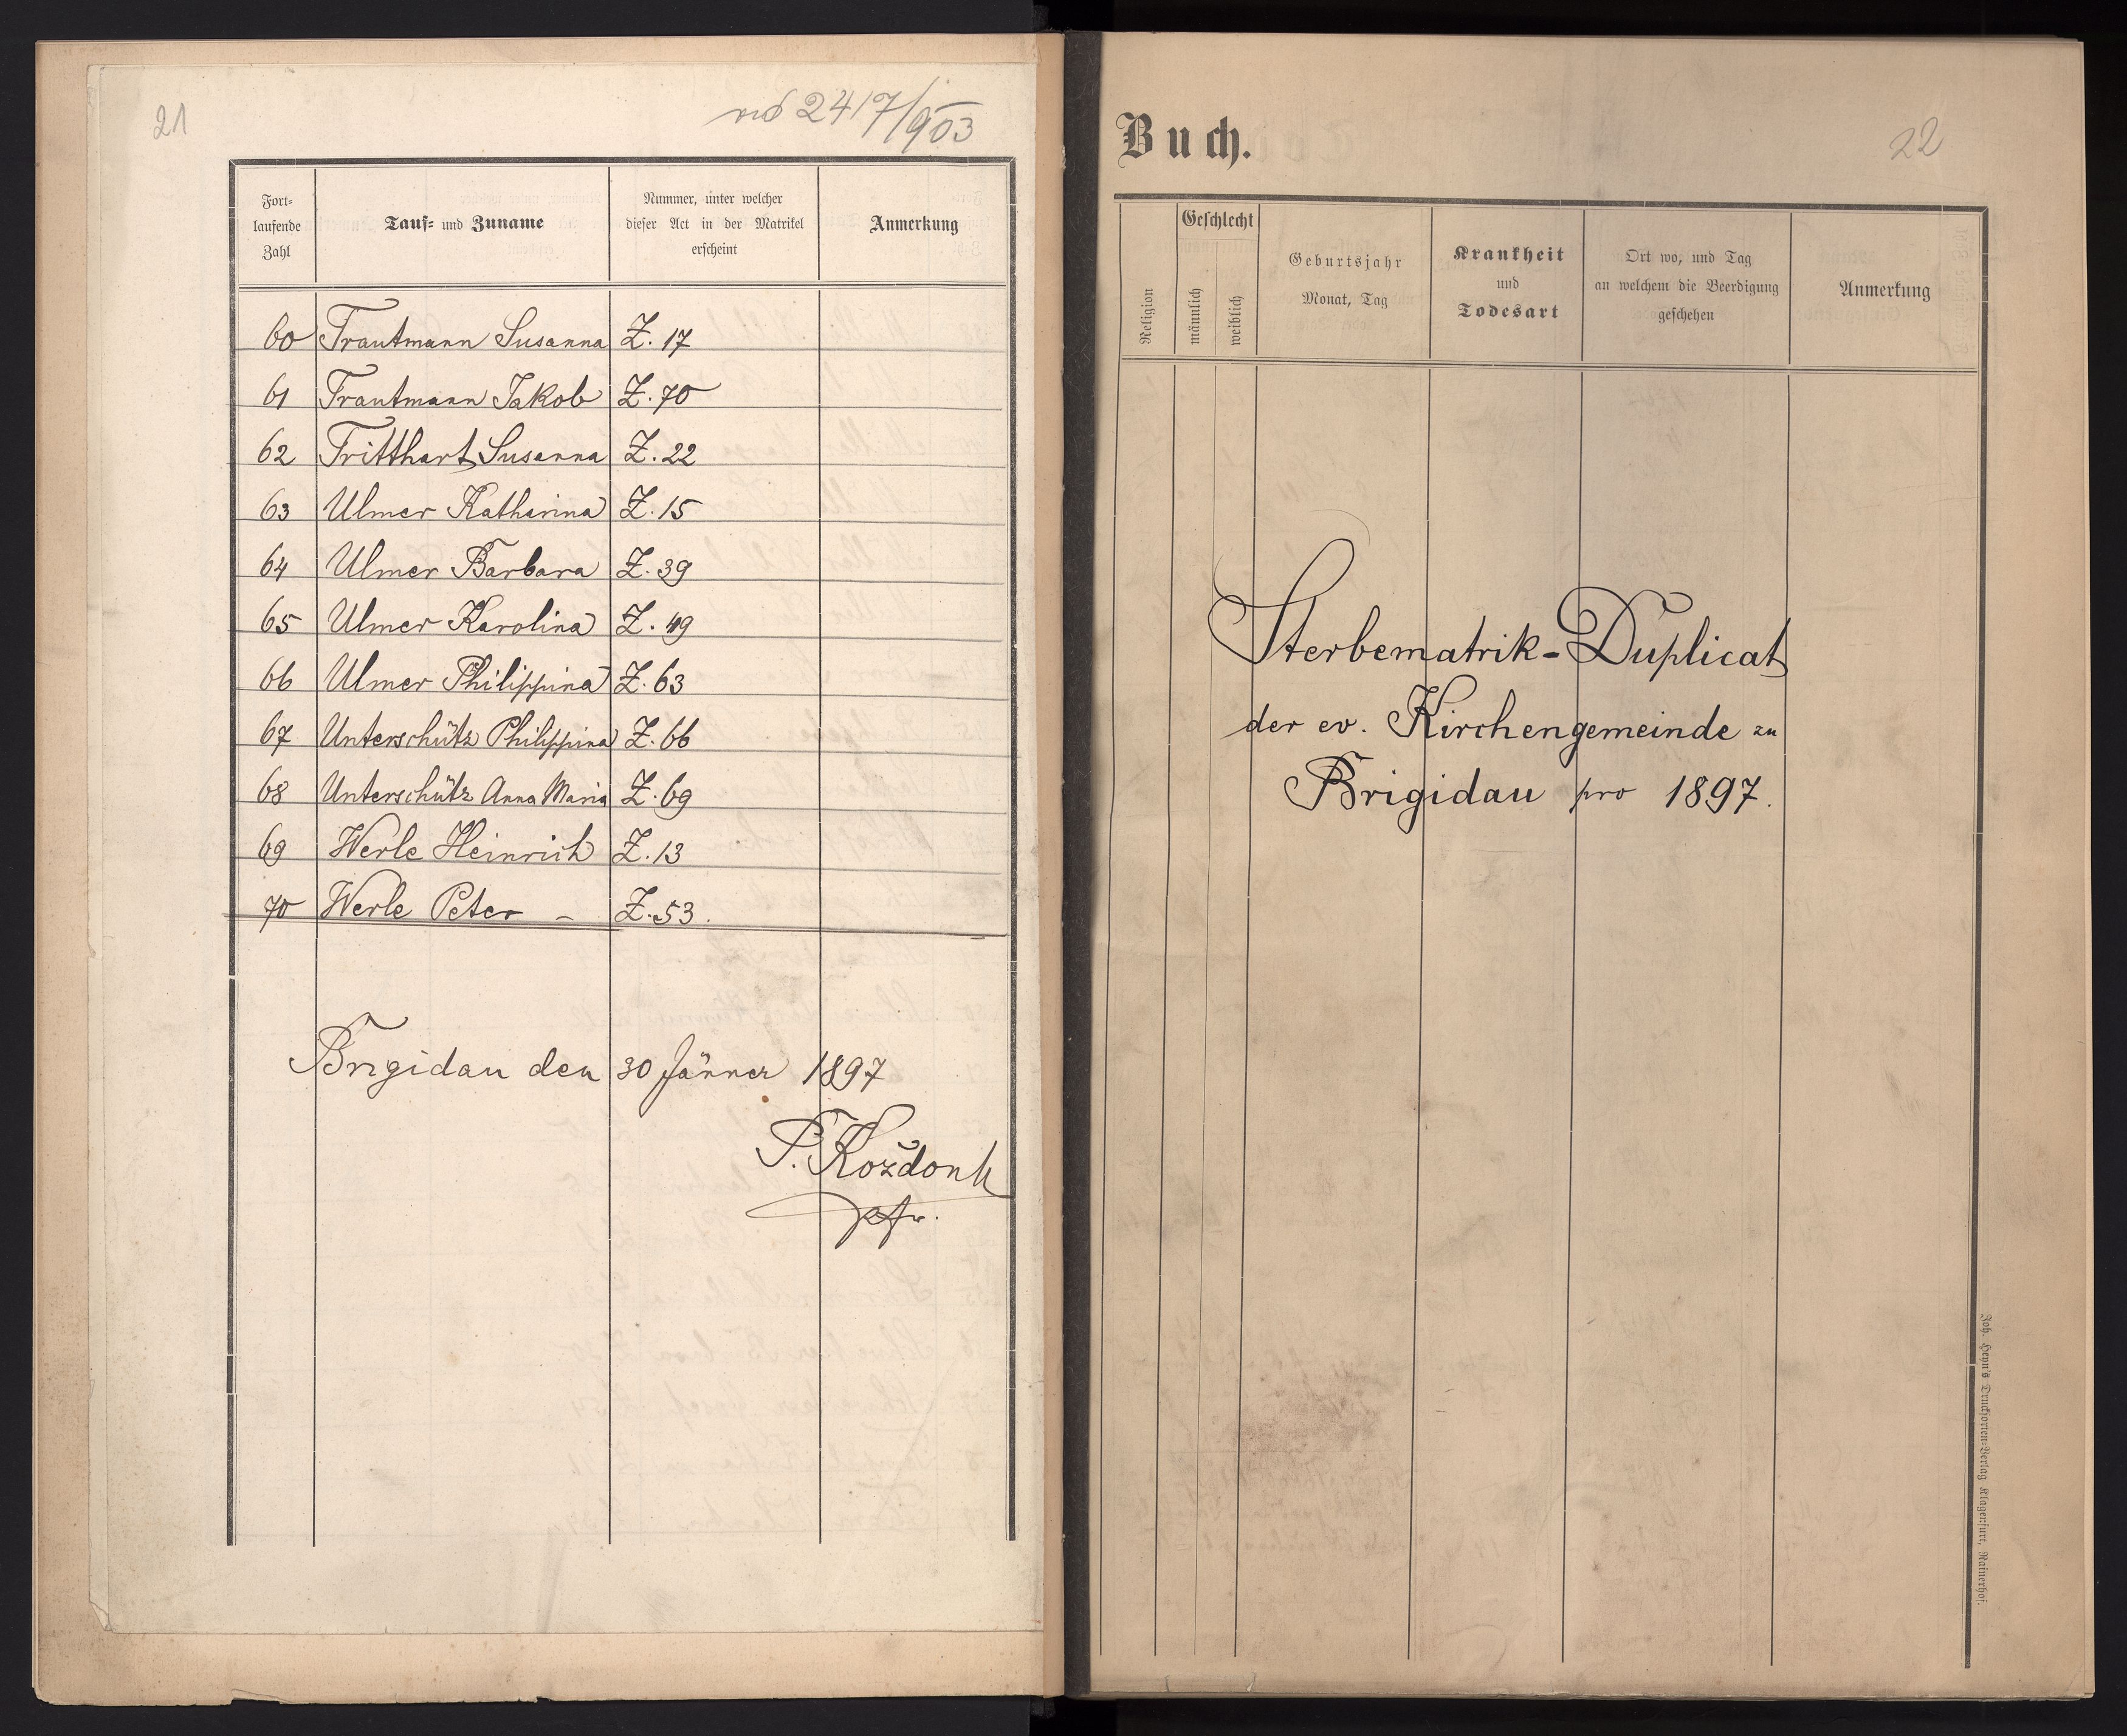 21
2417/903
Fort-
laufende
Zahl
Tauf- und Zuname
Nummer, unter welcher
dieser Act in der Matrikel
erscheint
Anmerkung
60 Trautmann Susanna Z. 17
61 Trautmann Jakob Z. 70
62 Tritthart Susanna Z. 22
63 Ulmer Katharina Z. 15
64 Ulmer Barbara Z. 39
65 Ulmer Karolina Z. 49
66 Ulmer Philippina Z. 63
67 Unterschütz Philippina Z. 66
68 Unterschütz Anna Maria Z. 69
69 Werle Heinrich Z. 13
70 Werle Peter - Z. 53.
Brigidau den 30 Jänner 1897
P. Koždoń
Pfr.
Buch.
22
Religion
Geschlecht
männlich
weiblich
Geburtsjahr
Monat, Tag
Krankheit
und
Todesart
Ort wo, und Tag
an welchem die Beerdigung
geschehen
Anmerkung
Sterbematrik-Duplicat
der ev. Kirchengemeinde zu
Brigidau pro 1897.
Joh. Heyn's Drucksorten-Verlag Klagenfurt, Rainerhof.